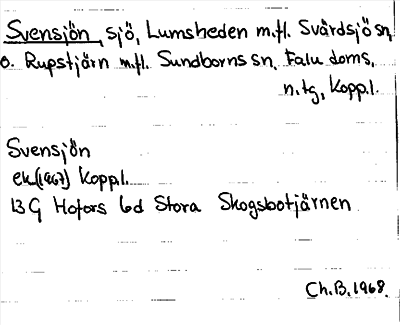 Svensjön, sjö, Lumsheden m.fl. Svärdsjö sn,
o. Rupstjärn m.fl. Sundborns sn, Falu doms,
n. tg, Kopp.l.
Svensjön
ek.(1967) Kopp.l.
13 G Hofors 6d Stora Skogsbotjärnen
Ch.B. 1968.